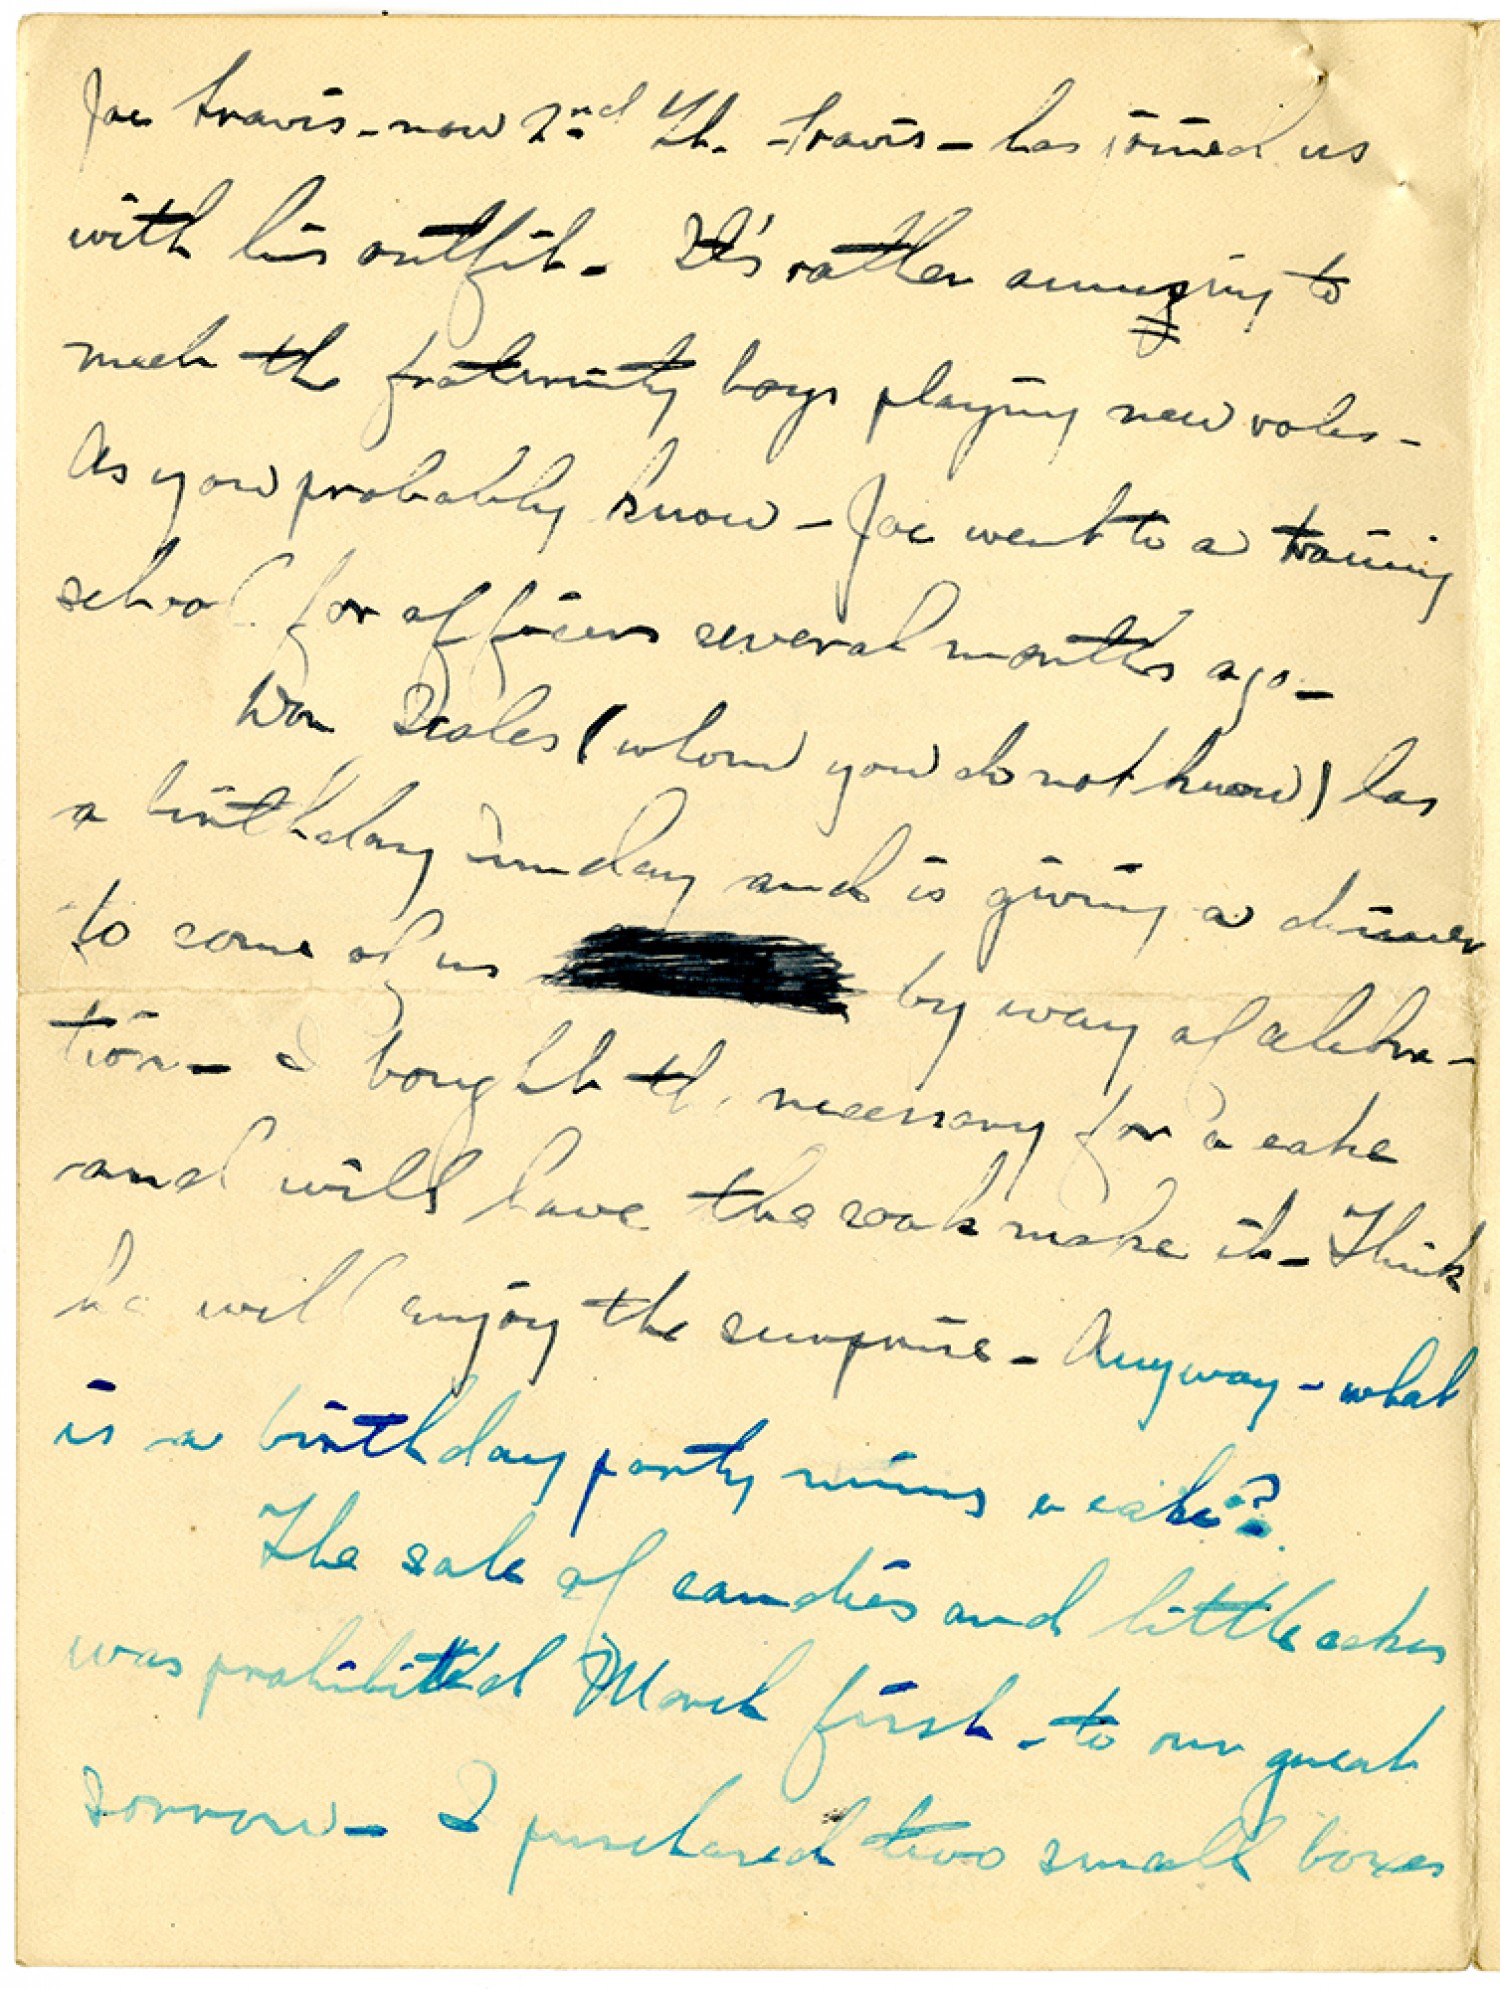 Joe Travis - now 2nd Lt. Travis - has joined us
with his outfit - It's rather amusing to
meet the fraternity boys playing new roles -
As you probably know - Joe went to a training
school for officers several months ago -
Don Scales (whom you do not know) has
a birthday Sunday and is giving a dinner
to some of us by way of celebra-
tion - I bought the necessary for a cake
and will have the cook make it - Think
he will enjoy the surprise - Anyway - what
is a birthday party minus a cake?
The sale of candies and little cakes
was prohibited March first - to our great
sorrow - I purchased two small boxes